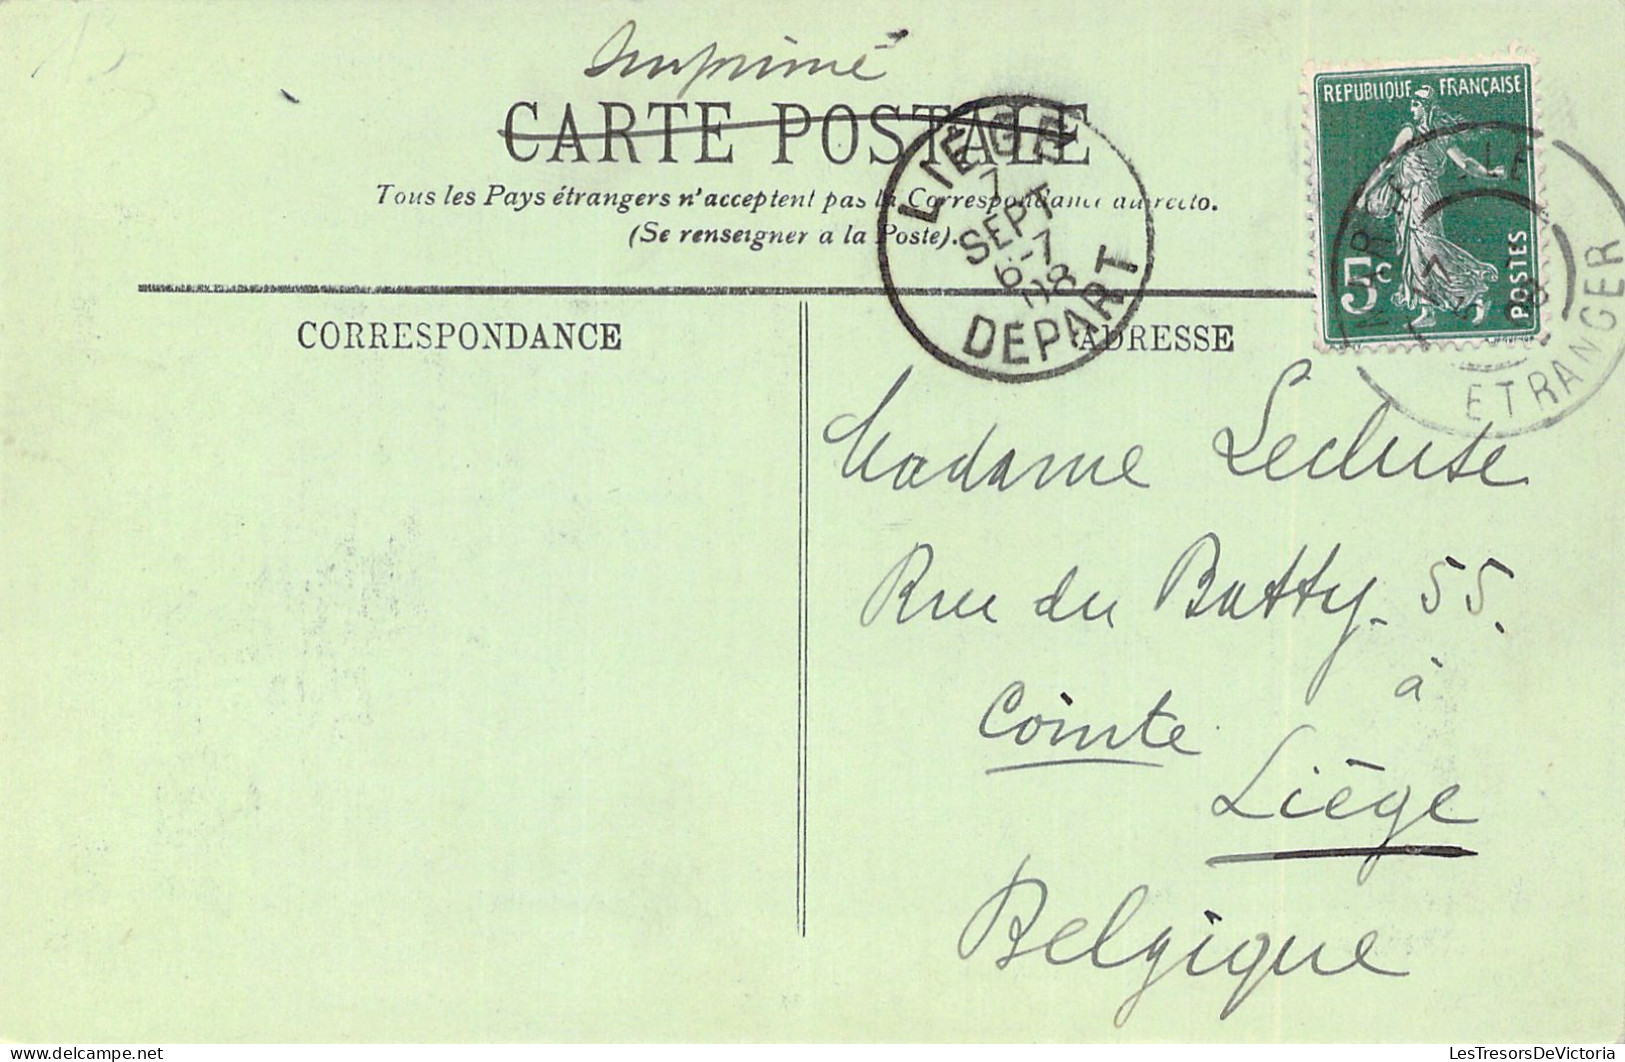 Imprimé
CARTE POSTALE
Tous les Pays étrangers n'acceptent pas la Correspondance au recto.
(Se renseigner a la Poste).
LIÈGE
7
SEPT
6-7
08
DEPART
REPUBLIQUE FRANÇAISE
5c
POSTES
ETRANGER
CORRESPONDANCE
ADRESSE
Madame Lecluse
Rue du Batty. 55.
à
Cointe
Liège
Belgique
LesTresorsDeVictoria